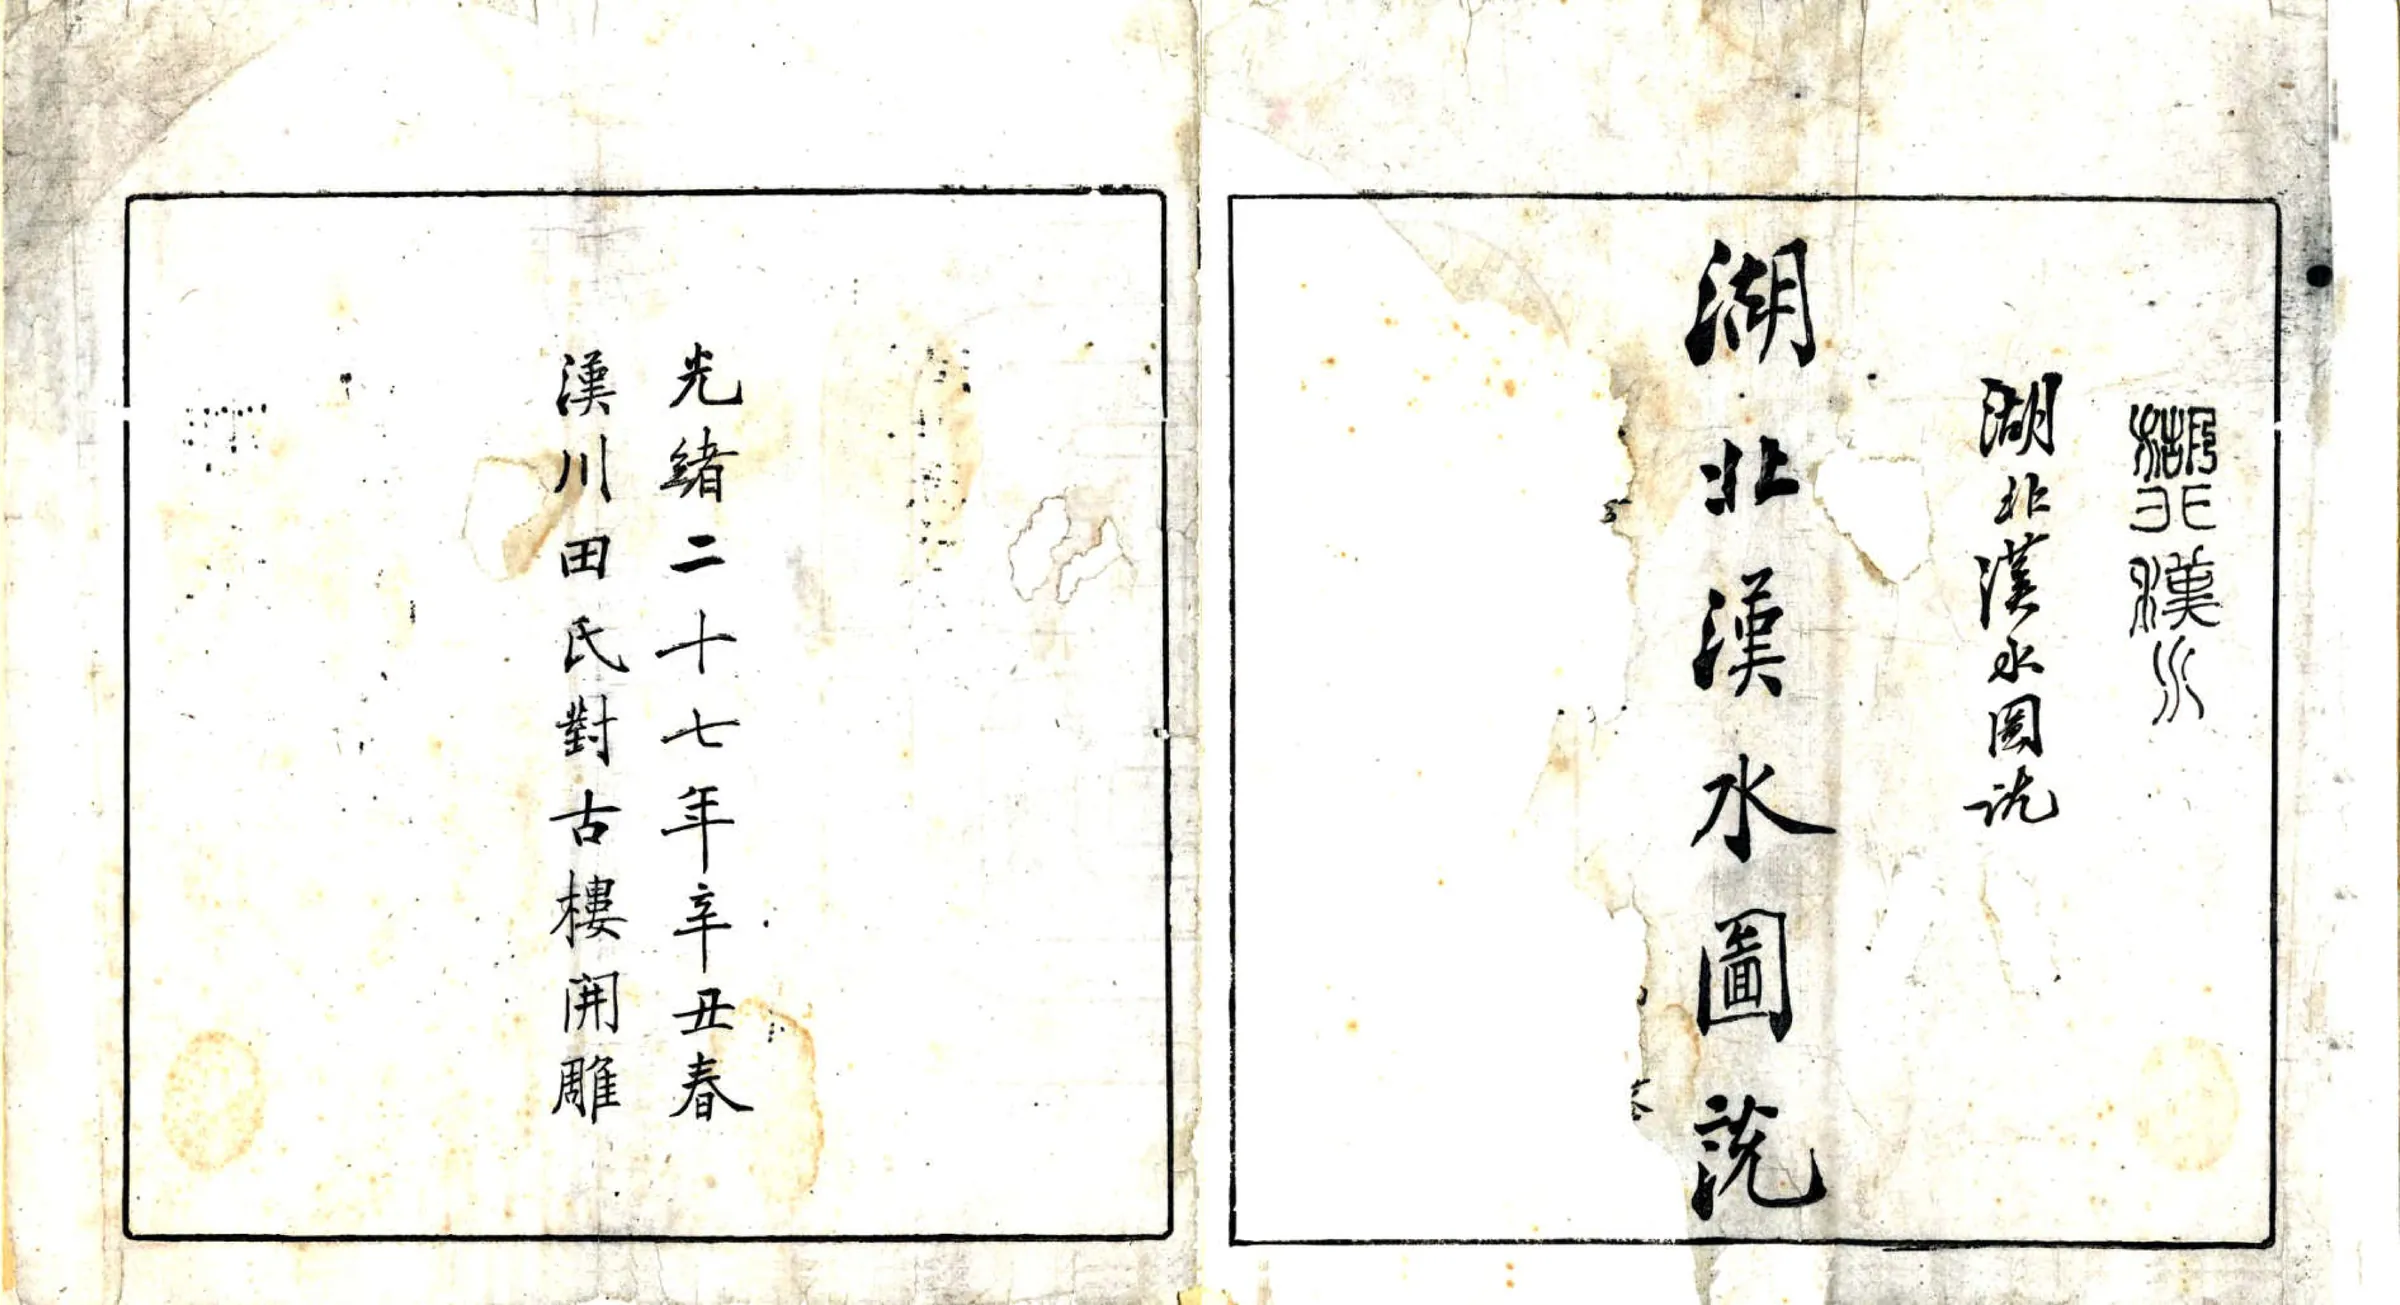 湖北漢水
湖北漢水圖説
湖北漢水圖説
光緒二十七年辛丑春
漢川田氏對古樓開雕